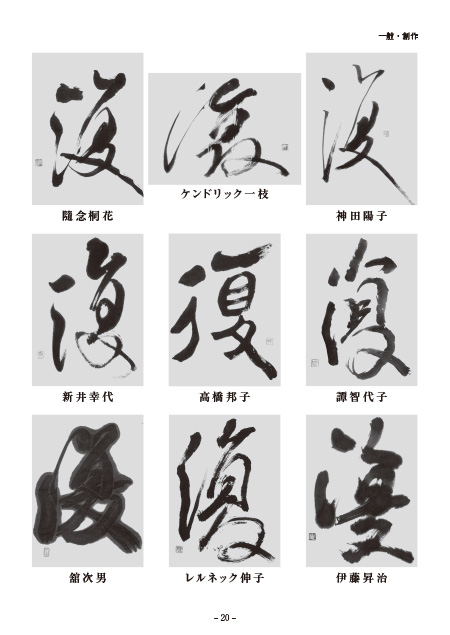 一般・創作
復
復
復
隨念桐花
ケンドリック一枝
神田陽子
復
復
復
新井幸代
高橋邦子
譚智代子
復
復
復
舘次男
レルネック伸子
伊藤昇治
– 20 –